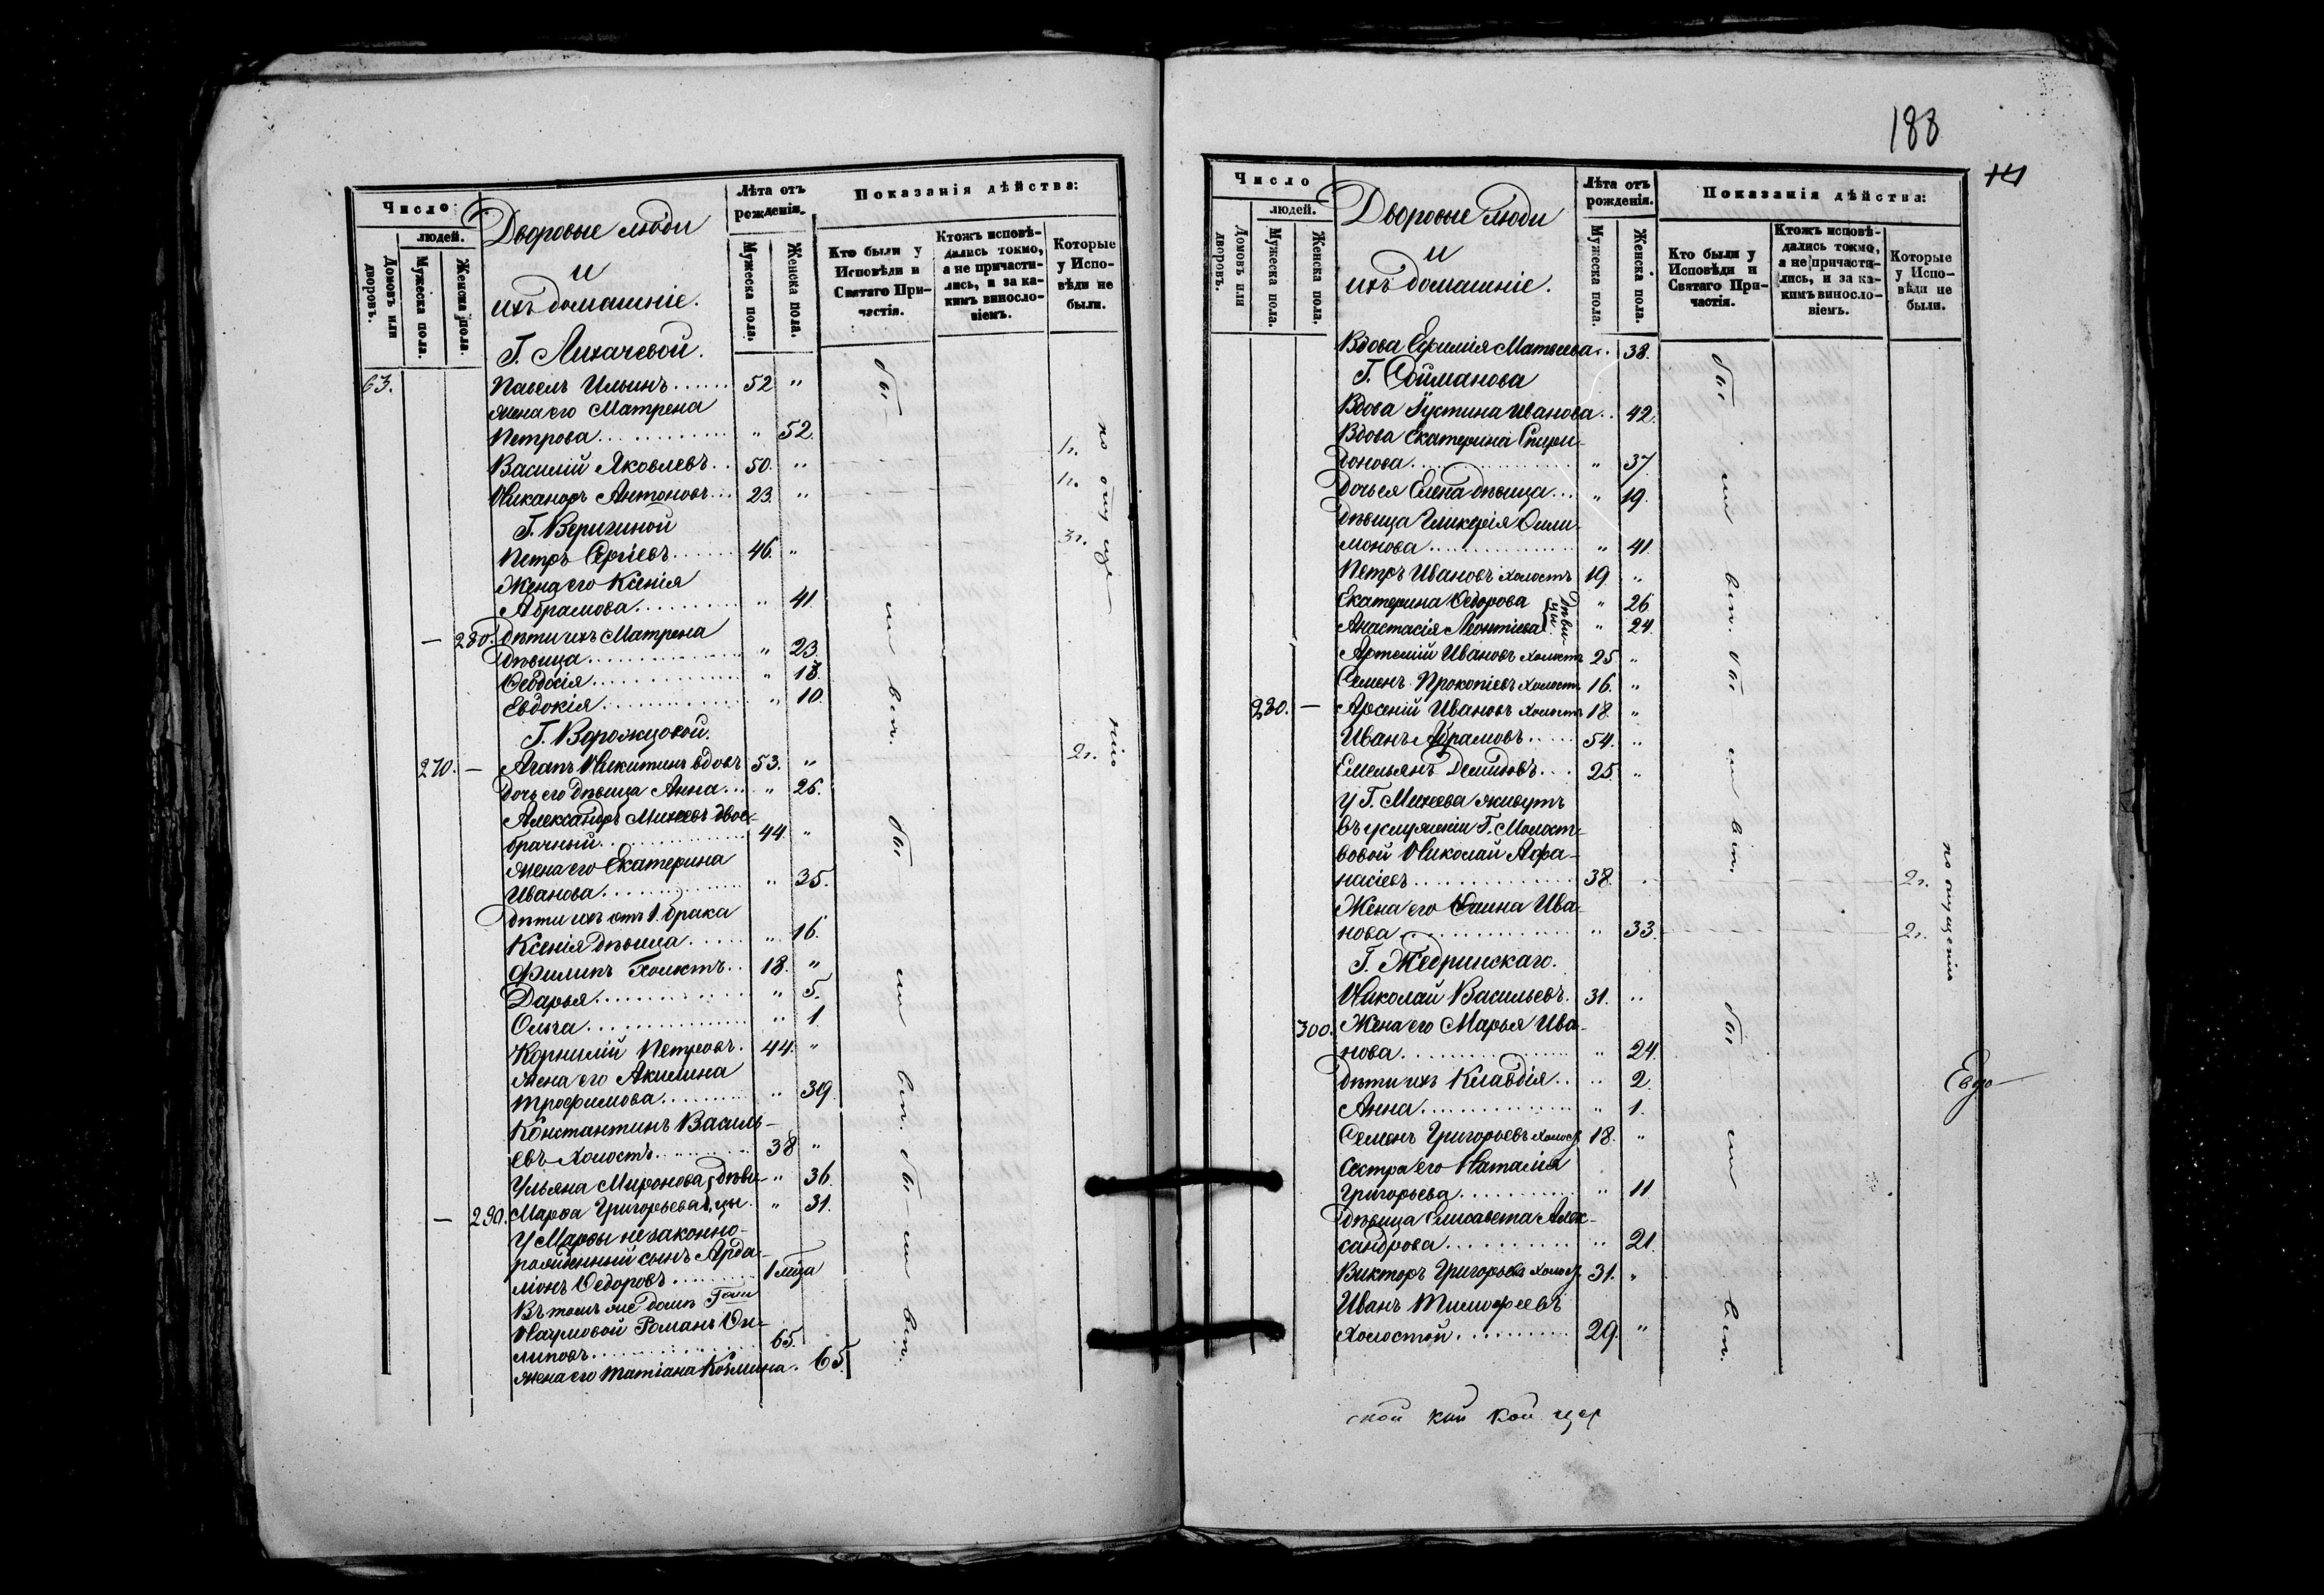 Число:
людей.
Домовъ или дворовъ.
Мужеска пола.
Женска пола.
Дворовые люди
и
ихъ домашніе.
Лѣта отъ рожденія.
Мужеска пола.
Женска пола.
Показанія дѣйства:
Кто были у Исповѣди и Святаго Причастія.
Ктожъ исповѣдались токмо, а не причастились, и за какимъ винословіемъ.
Которые у Исповѣди не были.
Г. Лихачевой.
63. Павелъ Ильинъ....... 52 "
жена его Матрена
Петрова............. " 52.
Василій Яковлевъ... 50. "
Никаноръ Антоновъ... 23. "
Г. Веригиной
Петръ Сергіевъ....... 46. " 3г.
Жена его Ксенія
Абрамова.......... " 41.
— 280. Дѣти ихъ Матрена
дѣвица............. " 23.
Ѳеодосія............. " 18.
Евдокія............. " 10.
Г. Ворожцовой.
270. — Агапъ Никитинъ вдовъ 53. " 2г.
дочь его дѣвица Анна.... " 26.
Александръ Михеевъ двое-
брачный............. 44. "
жена его Екатерина
Иванова............. " 35.
дѣти ихъ отъ 1. брака
Ксенія дѣвица...... " 16.
Филипъ Холостъ.. 18. "
Дарья............. " 5.
Ольга............. " 1.
Корнилій Петровъ. 44. "
жена его Акилина
Трофимова......... " 39.
Константинъ Василь-
евъ Холостъ......... 38 "
Ульяна Миронова } дѣви- " 36.
— 290. Марѳа Григорьева } цы. " 31.
У Марѳы незаконно-
рожденный сынъ Арда-
ліонъ Ѳедоровъ......... 1 мѣся
Въ томъ же домѣ Гжи
Наумовой Романъ Фи-
липовъ............. 65.
жена его Татіана Козмина. 65.
по опущенію
188
Число
людей.
Домовъ или дворовъ.
Мужеска пола.
Женска пола.
Дворовые люди
и
ихъ домашніе.
Лѣта отъ рожденія.
Мужеска пола.
Женска пола.
Показанія дѣйства:
Кто были у Исповѣди и Святаго Причастія.
Ктожъ исповѣдались токмо, а не причастились, и за какимъ винословіемъ.
Которые у Исповѣди не были.
Вдова Ефимія Матвѣева.. 38.
Г. Соймонова
Вдова Іустина Иванова.. 42.
Вдова Екатерина Спири-
донова............. " 37.
дочь ея Елена дѣвица... " 19.
дѣвица Гликерія Фили-
монова............. " 41.
Петръ Ивановъ холостъ 19. "
Екатерина Ѳедорова } дѣви- " 26
Анастасія Леонтіева } цы. " 24.
Артемій Ивановъ холостъ 25. "
Семенъ Прокопіевъ холостъ 16. "
280. — Арсеній Ивановъ холостъ 18. "
Иванъ Абрамовъ..... 54. "
Емельянъ Демидовъ... 25. "
У Г. Михеева живутъ
въ услуженіи Г. Молост-
вовой Николай Афа-
насіевъ............. 38. 2г.
Жена его Фаина Ива-
нова............. " 33. 2г.
Г. Жедринскаго.
Николай Васильевъ. 31. "
300. Жена его Марья Ива-
нова............. " 24.
дѣти ихъ Клавдія.. " 2.
Анна............. " 1.
Семенъ Григорьевъ холост 18. "
сестра его Наталія
Григорьева......... " 11
дѣвица Елисавета Алек-
сандрова......... " 21.
Викторъ Григорьевъ холост 31. "
Иванъ Тимофеевъ
холостой......... 29. "
по опущенію
Евдо-
ской кой кой цер